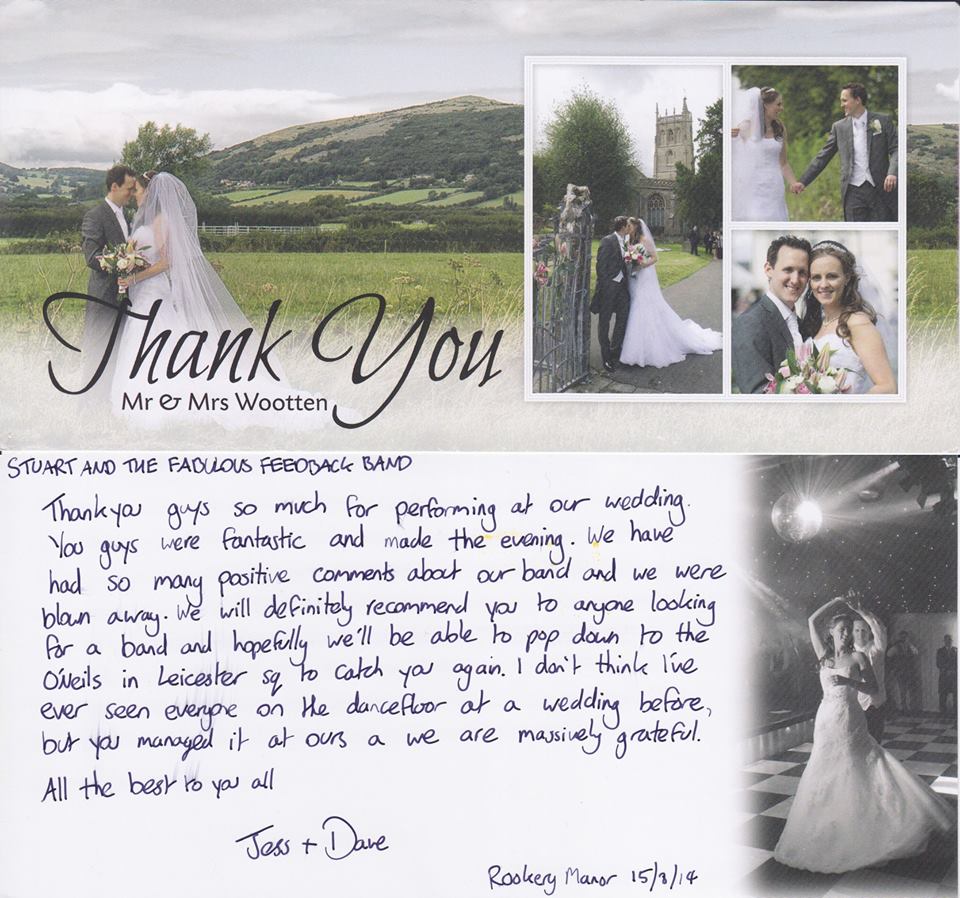 Thank You
Mr & Mrs Wootten
STUART AND THE FABULOUS FEEDBACK BAND
Thankyou guys so much for performing at our wedding.
You guys were fantastic and made the evening. We have
had so many positive comments about our band and we were
blown away. We will definitely recommend you to anyone looking
for a band and hopefully we'll be able to pop down to the
O'Neils in Leicester sq to catch you again. I don't think I've
ever seen everyone on the dancefloor at a wedding before,
but you managed it at ours a we are massively grateful.
All the best to you all
Jess + Dave
Rookery Manor 15/8/14